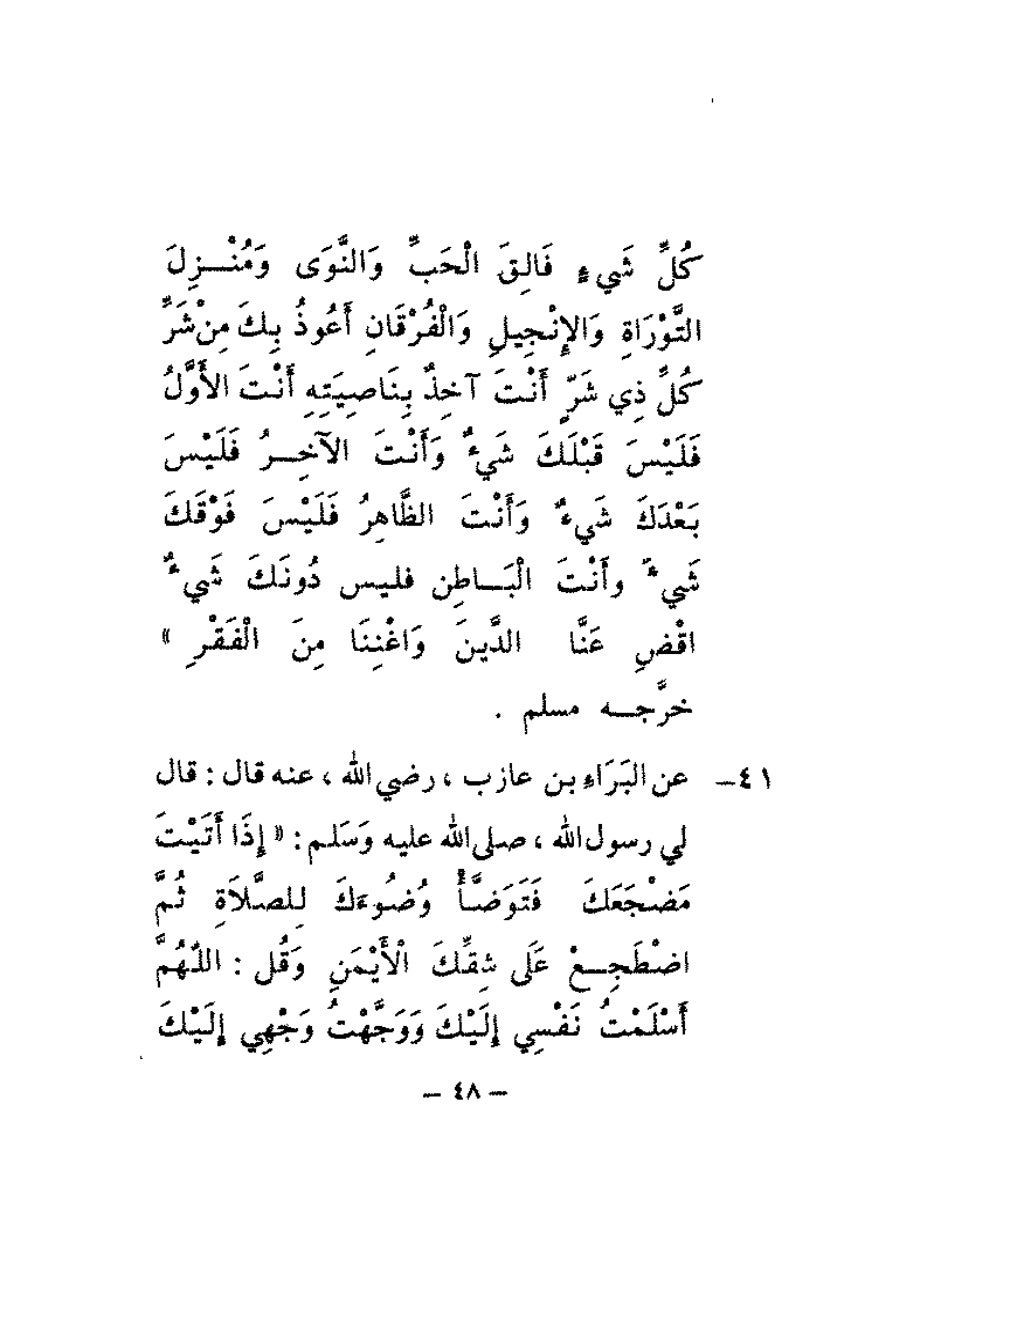 كُلِّ شَيءٍ فَالِقَ الْحَبِّ وَالنَّوَى وَمُنْــزِلَ
التَّوْرَاةِ وَالإِنْجِيلِ وَالْفُرْقَانِ أَعُوذُ بِكَ مِنْ شَرِّ
كُلِّ ذِي شَرٍّ أَنْتَ آخِذٌ بِنَاصِيَتِهِ أَنْتَ الأَوَّلُ
فَلَيْسَ قَبْلَكَ شَيءٌ وَأَنْتَ الآخِــرُ فَلَيْسَ
بَعْدَكَ شَيءٌ وَأَنْتَ الظَّاهِرُ فَلَيْسَ فَوْقَكَ
شَيءٌ وأَنْتَ الْبَــاطِن فليس دُونَكَ شَيءٌ
اقْضِ عَنَّا الدَّينَ وَاغْنِنَا مِنَ الْفَقْرِ »
خرَّجــه مسلم .
٤١– عن البَرَاءِ بن عازب ، رضي الله ، عنه قال : قال
لي رسول الله ، صلى الله عليه وَسَلم : « إِذَا أَتَيْتَ
مَضْجَعَكَ فَتَوَضَّأْ وُضُوءَكَ لِلصَّلاَةِ ثُمَّ
اضْطَجِــعْ عَلَى شِقِّكَ الْأَيْمَنِ وَقُل : اللَّهُمَّ
أَسْلَمْتُ نَفْسِي إِلَيْكَ وَوَجَّهْتُ وَجْهِي إِلَيْكَ
– ٤٨ –